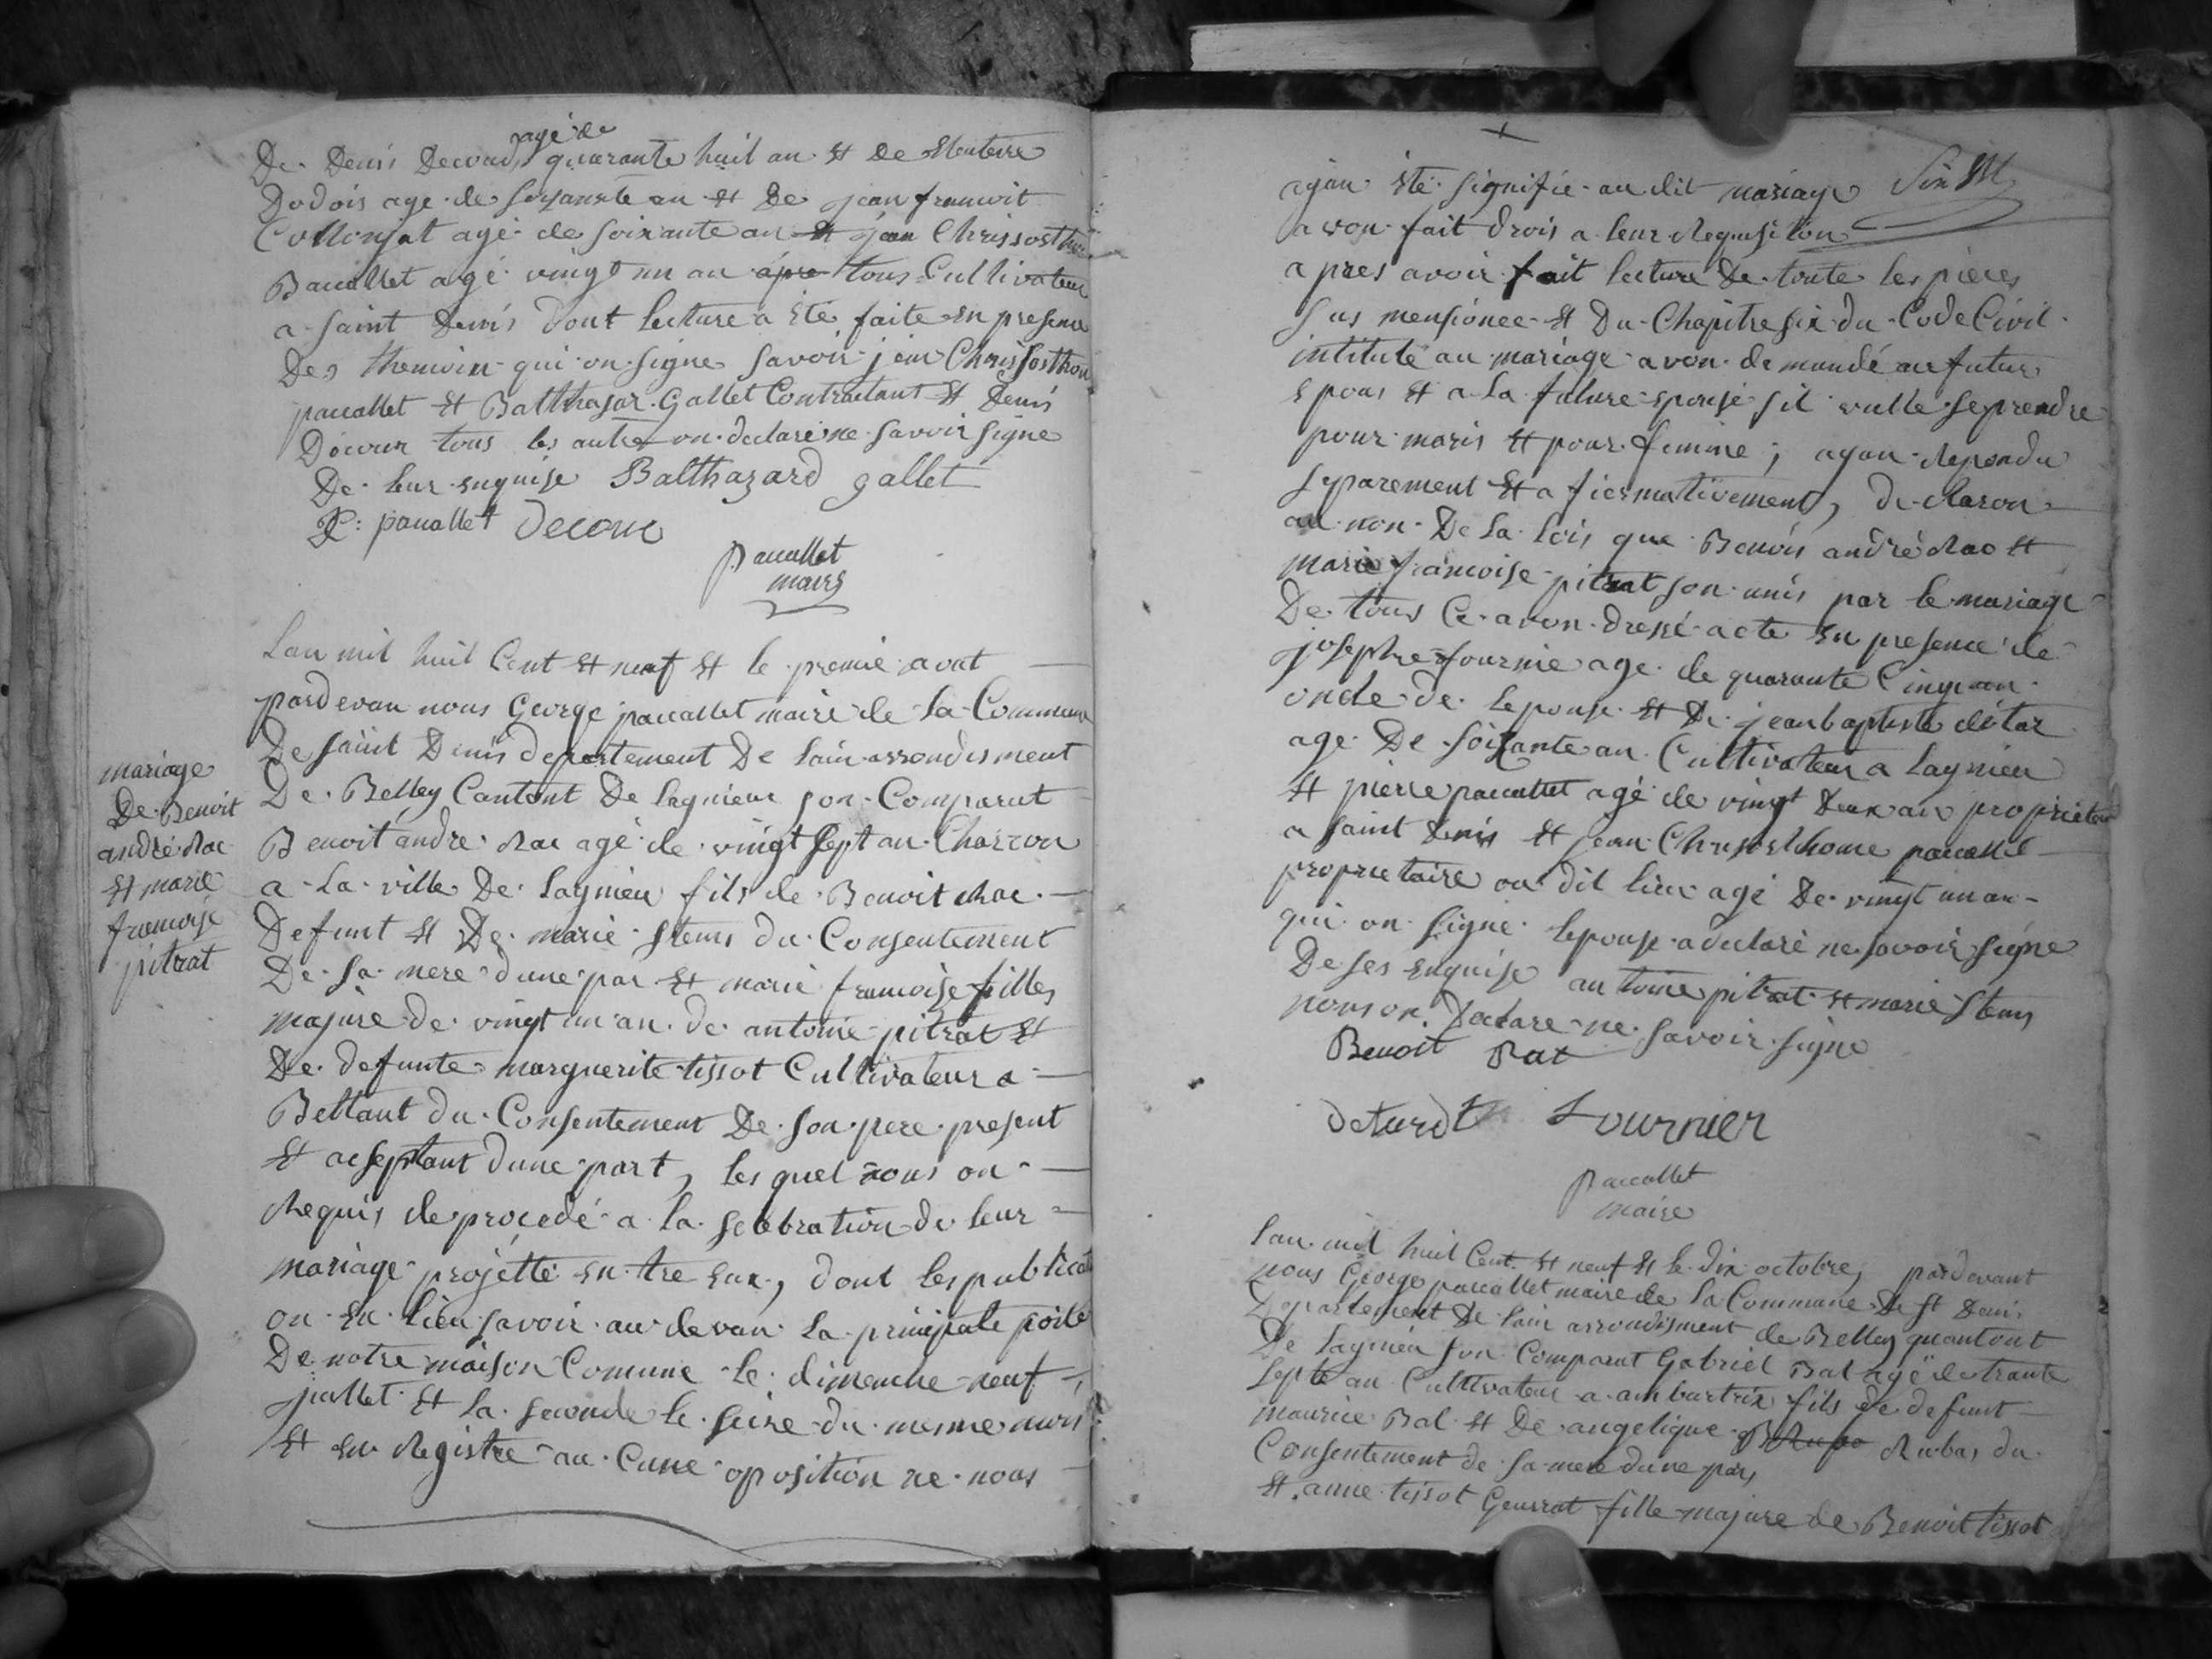 agé de
De Denis Decour quarante huit an et De
Dodois age de soixante an et De jean francoit
Collonjat agé de soixante an et jéan Chrissosthome
Paucallet agé vingt un an apre tous Cultivateur
a saint Denis dont lecture a été faite en presence
Des themoin qui on signe savoir jean Chrissosthom
paucallet et Balthasar Gallet Contractant et Denis
Décour tous les autre on declare ne savoir signe
De leur enquise Balthazard gallet
paucallet Decour
paucallet
maire
Lan mil huit Cent et neuf et le premie avat
pardevan nous George paucallet maire de la Commune
De saint Denis departement De lain arrondisment
De Belley Cantont De lagnieux son Comparut
Benoit andre Rac agé de vingt sept an Charron
a La ville De lagnieu fils de Benoit Rac
Defunt et De marie stems du Consentement
De sa mere dune par et marie francoise filles
majure de vingt un an de antoine pitrat et
De defunte marguerite tissot Cultivateur a
Bettant du Consentement De son pere present
et acseptant dune part, les quel nous on
Requis de procedé a la selebration de leur
mariage projetté en tre eux, dont les publicat
on eu lieu savoir au devan la principale porte
De notre maison Comune le dimenche neuf
juillet et la seconde le seise du mesme mois
Et en Registre au Cune oposition ne nous
mariage
De Benoit
andré Rac
et marie
francoise
pitrat
ayan été signifie au dit mariage
avon fait drois a leur Requisition
apres avoir fait lecture De toute les pieces
sus mensionee et Du Chapitre six du Code Civil
intitulé au mariage avon demandé au futur
epous et a La future epouse sil vulle se prendre
pour maris et pour femme; ayan Repondu
separement et afiermativement, declaron
au non De La lois que Benois andré Rac et
marie francoise pitrat son unis par le mariage
De tous Ce avon dressé acte en presence de
josephre fournie age de quarante Cinq an
oncle de lepouse et De jean baptiste détar
age De soixante an Cultivateur a lagnieu
et pierre paucallet agé de vingt deux an proprietair
a saint Denis et jean Chrisosthome paucallet
proprietaire au dit lieu agé De vingt un an
qui on signe lepouse a declaré ne savoir signe
De ses enquise antoine pitrat et marie stems
nous on Declare ne savoir signe
Benoit Rat
Deturdt Fournier
paucallet
maire
Lan mil huit Cent et neuf et le dix octobre, pardevant
nous George paucallet maire de la Commune De St Denis
Departement De lain arrondisment de Belley quantont
De lagnieu son Comparut Gabriel Bal agé de trante
septe an Cultivateur a ambutrix fils de defunt
maurice Bal et De angelique Rubas du
Consentement de sa mere dune par,
et anne tissot Geurrat fille majure de Benoit tissot